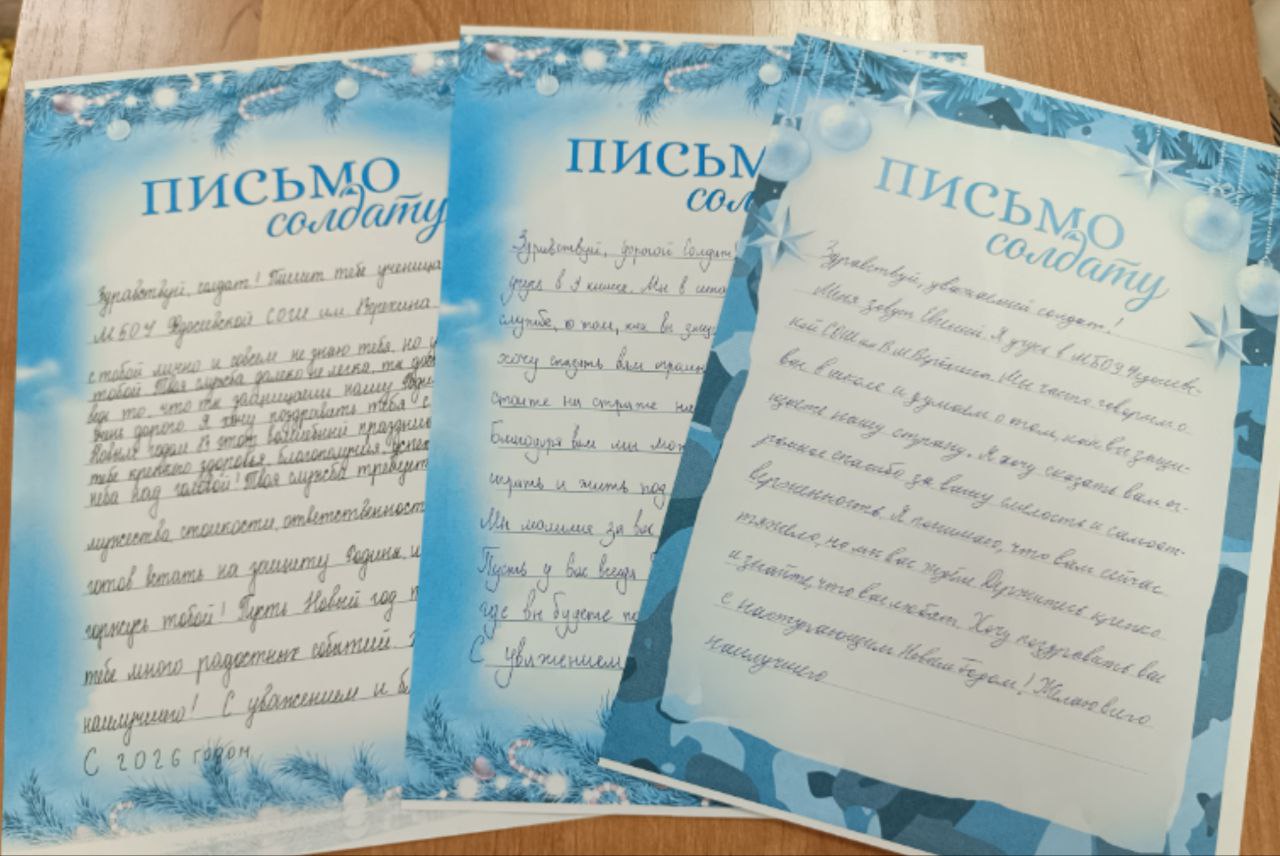 ПИСЬМО
солдату
Здравствуй, солдат! Пишет тебе ученица
МБОУ Федосеевской СОШ им. Верёхина
с тобой лично и совсем не знаю тебя, но
тобой. Твоя служба далеко не легка, ты
ведь то, что ты защищаешь нашу
очень дорого. Я хочу поздравить тебя с
Новым годом. В этот волшебный праздник
тебе крепкого здоровья, благополучия,
неба над головой! Твоя служба требует
мужества, стойкости, ответственност
готов встать на защиту Родины, и
горжусь тобой! Пусть Новый год
тебе много радостных событий
наилучшего! С уважением и
С 2026 годом
ПИСЬМ
сол
Здравствуй, дорогой Солдат!
учусь в 9 классе. Мы в
службе, о том, как вы
хочу сказать вам
стоите на страже
Благодаря вам мы
играть и жить под
Мы молимся за вас
Пусть у вас всегда
где вы будете
С уважением
ПИСЬМО
солдату
Здравствуй, уважаемый солдат!
Меня зовут Евгений. Я учусь в МБОУ Федосеев-
кой СОШ им В.М. Мы часто говорим о
вас в школе и думаем о том, как вы защи-
щаете нашу страну. Я хочу сказать вам ог-
ромное спасибо за вашу смелость и самоот-
верженность. Я понимаю, что вам сейчас
тяжело, но мы вас ждём. Держитесь крепко
и знайте, что вас любят. Хочу поздравить вас
с наступающим Новым Годом! Желаю всего
наилучшего